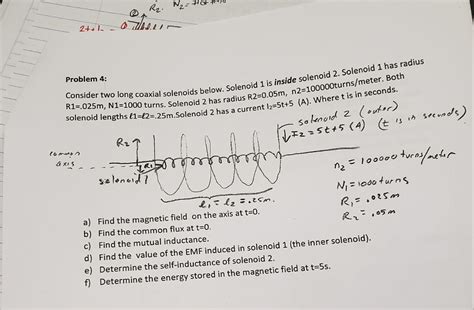 R2
2
Problem 4:
Consider two long coaxial solenoids below. Solenoid 1 is inside solenoid 2. Solenoid 1 has radius
R1=.025m, N1=1000 turns. Solenoid 2 has radius R2=0.05m, n2=100000turns/meter. Both
solenoid lengths ℓ1=ℓ2=.25m.Solenoid 2 has a current I2=5t+5 (A). Where t is in seconds.
solenoid 2 (outer)
I2 = 5t+5 (A) (t is in seconds)
R2
common
axis
R1
solenoid 1
n2 = 100000 turns/meter
N1 = 1000 turns
R1 = .025m
R2 = .05m
ℓ1 = ℓ2 = .25m.
a) Find the magnetic field on the axis at t=0.
b) Find the common flux at t=0.
c) Find the mutual inductance.
d) Find the value of the EMF induced in solenoid 1 (the inner solenoid).
e) Determine the self-inductance of solenoid 2.
f) Determine the energy stored in the magnetic field at t=5s.